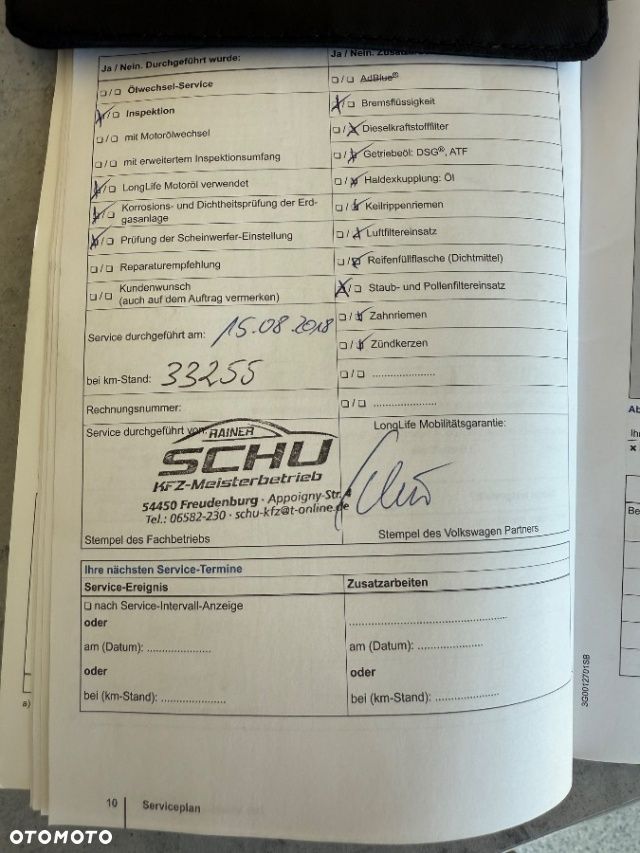 Ja / Nein. Durchgeführt wurde:
❏/❏ Ölwechsel-Service
❏/❏ Inspektion
❏/❏ mit Motorölwechsel
❏/❏ mit erweitertem Inspektionsumfang
❏/❏ LongLife Motoröl verwendet
❏/❏ Korrosions- und Dichtheitsprüfung der Erd-
gasanlage
❏/❏ Prüfung der Scheinwerfer-Einstellung
❏/❏ Reparaturempfehlung
❏/❏ Kundenwunsch
(auch auf dem Auftrag vermerken)
Service durchgeführt am: 15.08.2018
bei km-Stand: 33255
Rechnungsnummer:
Service durchgeführt von:
RAINER
SCHU
KFZ-Meisterbetrieb
54450 Freudenburg · Appoigny-Str. 4
Tel.: 06582-230 · schu-kfz@t-online.de
Stempel des Fachbetriebs
Ja / Nein.
❏/❏ AdBlue®
❏/❏ Bremsflüssigkeit
❏/❏ Dieselkraftstofffilter
❏/❏ Getriebeöl: DSG®, ATF
❏/❏ Haldexkupplung: Öl
❏/❏ Keilrippenriemen
❏/❏ Luftfiltereinsatz
❏/❏ Reifenfüllflasche (Dichtmittel)
❏/❏ Staub- und Pollenfiltereinsatz
❏/❏ Zahnriemen
❏/❏ Zündkerzen
❏/❏ .....................
❏/❏ .....................
LongLife Mobilitätsgarantie:
Stempel des Volkswagen Partners
Ihre nächsten Service-Termine
Service-Ereignis
❏ nach Service-Intervall-Anzeige
oder
am (Datum): .....................
oder
bei (km-Stand): .....................
Zusatzarbeiten
.....................
am (Datum): .....................
oder
bei (km-Stand): .....................
10 Serviceplan
3G0012701SB
a)
Ab
Ih
Be
OTOMOTO